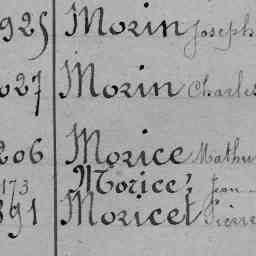 925 Morin Joseph
027 Morin Charles
206 Morice Mathu
173 Morice, Jean
891 Moricet Pierre